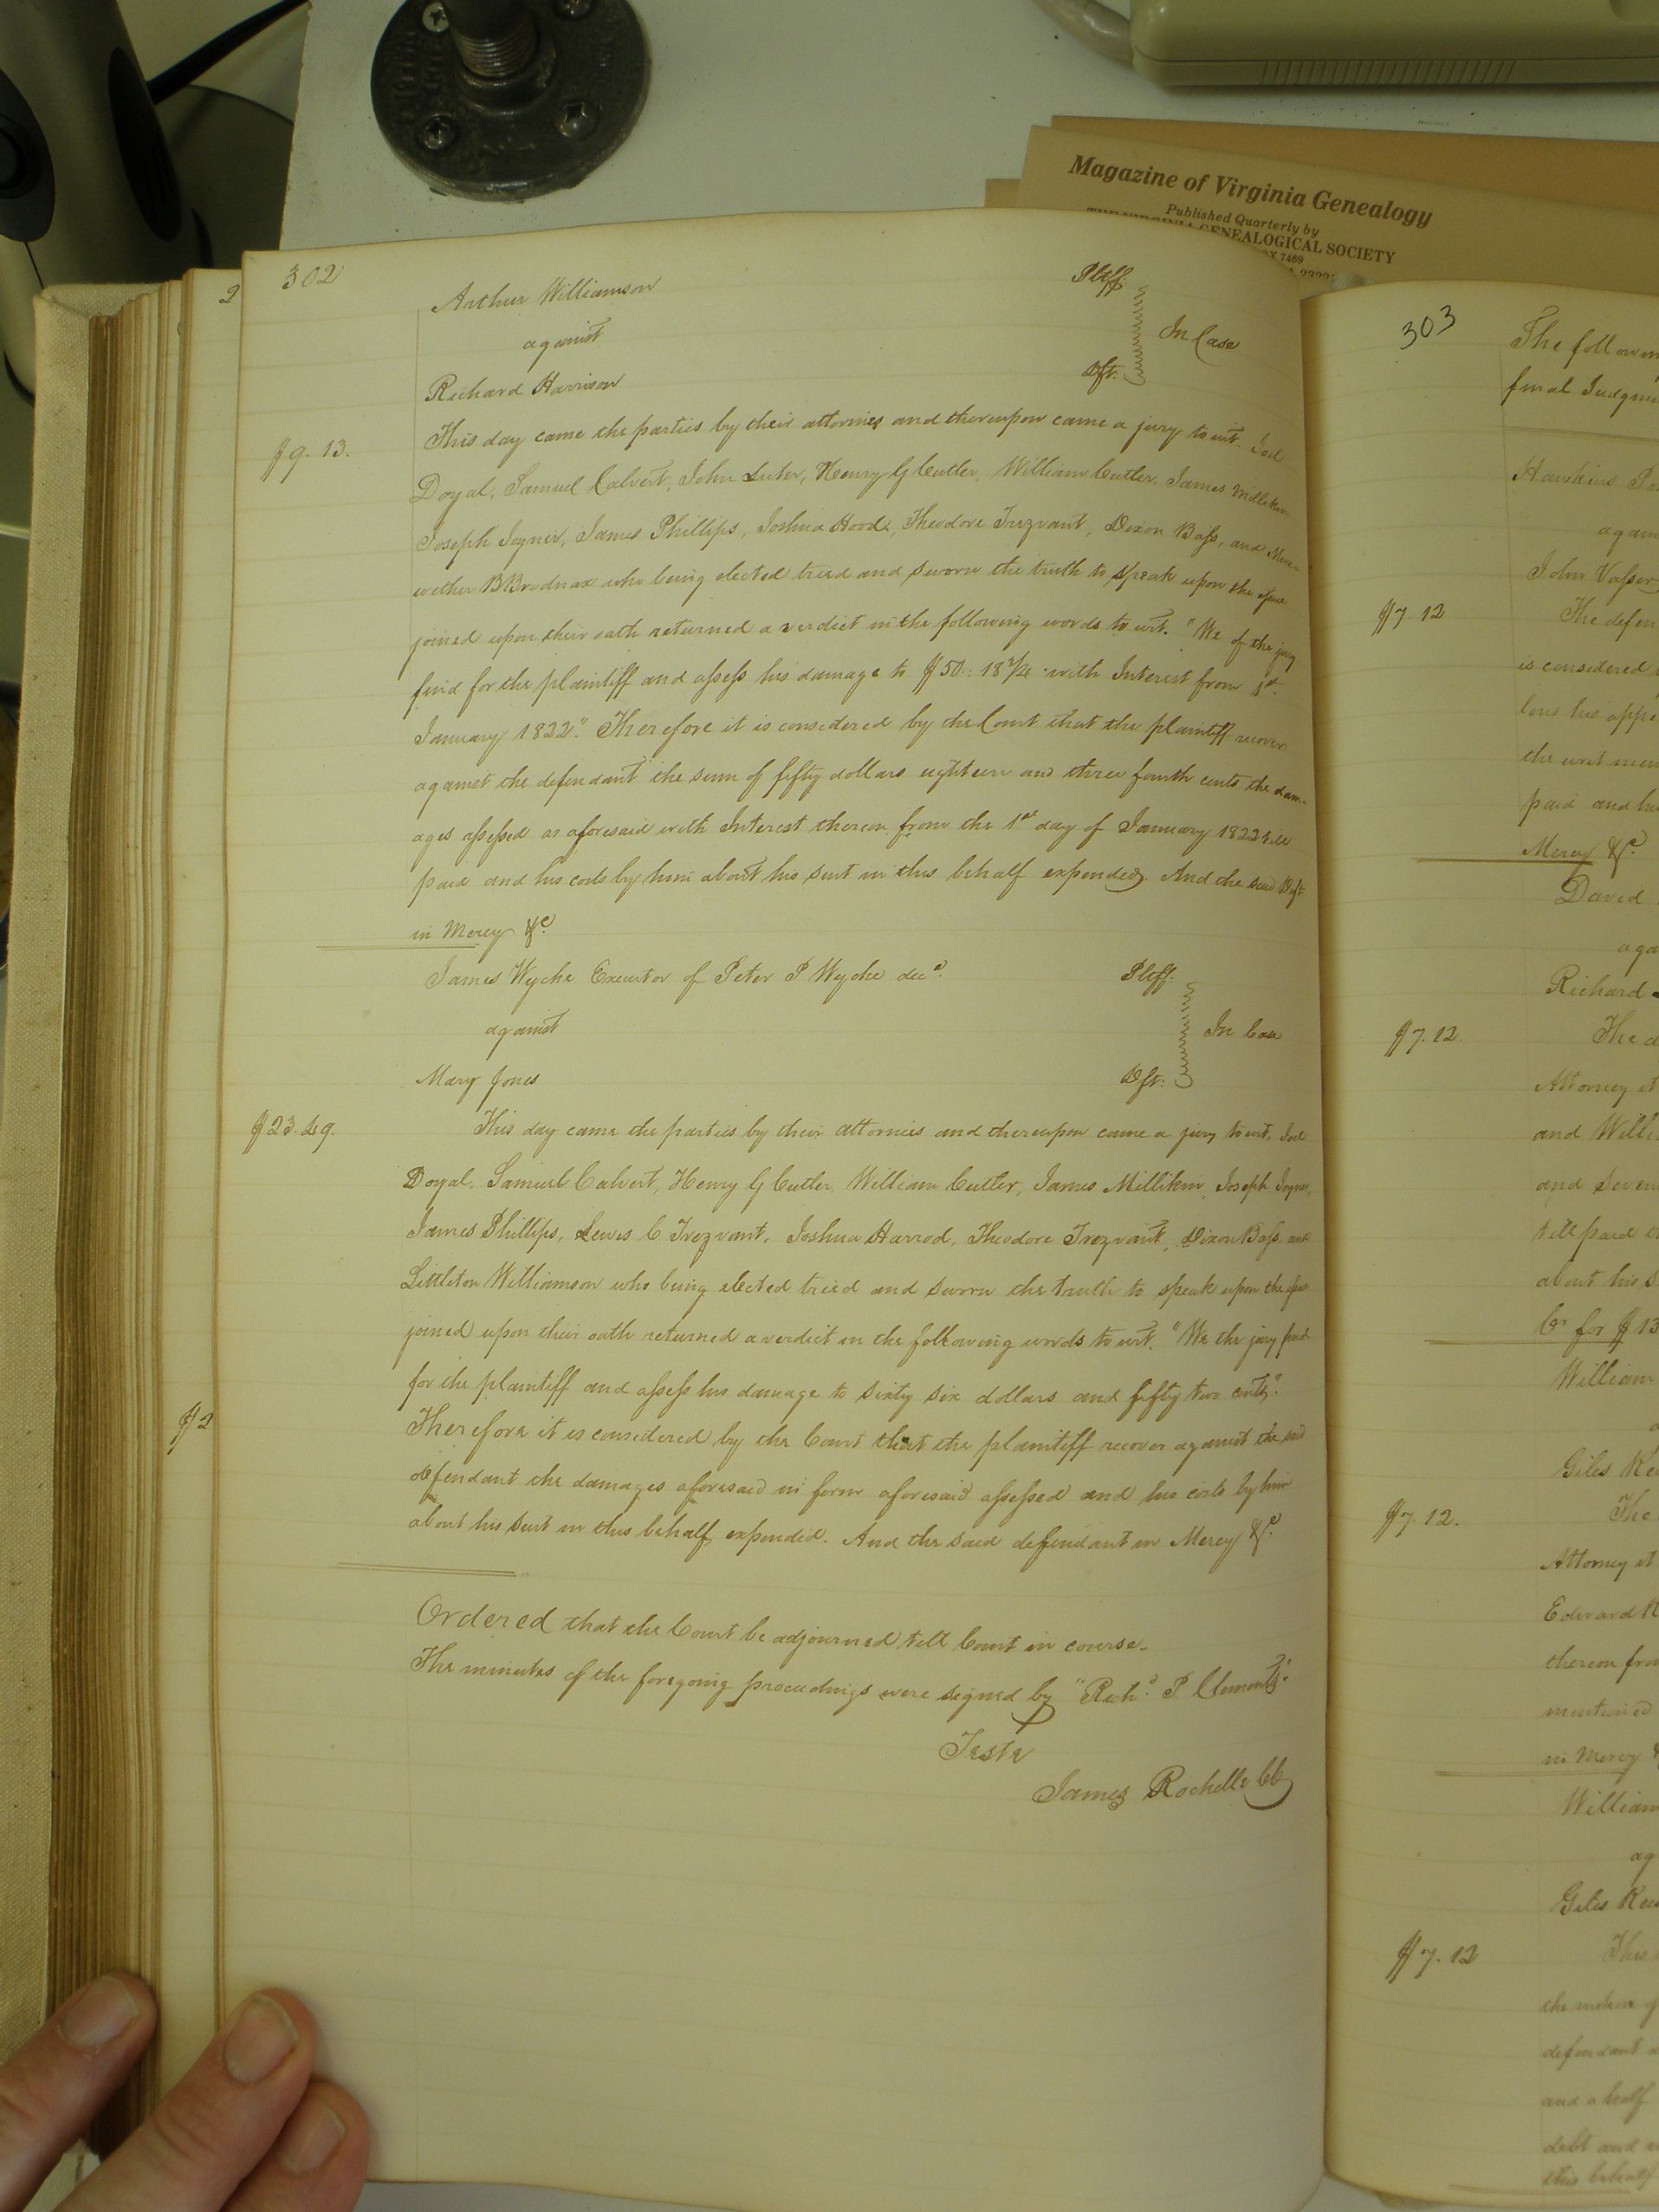 Magazine of Virginia Genealogy
Published Quarterly by
GENEALOGICAL SOCIETY
7469
302
Arthur Williamson Pltff.
against In Case
Richard Harrison Dft.
$9.13.
This day came the parties by their attornies and thereupon came a jury to wit. Joel
Doyal, Samuel Calvert, John Luter, Henry G Cutler, William Cutler, James Milliken
Joseph Joyner, James Phillips, Joshua Hood, Theodore Trezvant, Dixon Bass, and Mere-
wether B Brodnax who being elected tried and sworn the truth to speak upon the issue
joined upon their oath returned a verdict in the following words to wit. "We of the jury
find for the plaintiff and assess his damage to $50: 18 3/4 with Interest from 1st
January 1822." Therefore it is considered by the Court that the plaintiff recover
against the defendant the sum of fifty dollars eighteen and three fourth cents the dam-
ages assessed as aforesaid with Interest thereon from the 1st day of January 1822 till
paid and his costs by him about his suit in this behalf expended. And the said Deft
in Mercy &c.
James Wyche Executor of Peter P Wyche decd. Pltff.
against In Case
Mary Jones Dft.
$23.49.
This day came the parties by their attornies and thereupon came a jury to wit, Joel
Doyal. Samuel Calvert, Henry G Cutler, William Cutler, James Milliken, Joseph Joyner,
James Phillips, Lewis C Trezvant, Joshua Harrod, Theodore Trezvant, Dixon Bass, and
Littleton Williamson who being elected tried and sworn the truth to speak upon the issue
joined upon their oath returned a verdict in the following words to wit. "We the jury find
for the plaintiff and assess his damage to sixty six dollars and fifty two cents".
Therefore it is considered by the Court that the plaintiff recover against the said
defendant the damages aforesaid in form aforesaid assessed and his costs by him
about his suit in this behalf expended. And the said defendant in Mercy &c.
Ordered that the Court be adjourned till Court in course.
The minutes of the foregoing proceedings were signed by "Richd. P. Clements".
Teste
James Rochelle CC
2
$2
303
The followin
final Judgme
Hawkins
again
John Vasser
$7.12
The defen
is considered
lous his appe
the writ men
paid and his
Mercy &c.
David
aga
Richard
$7.12
The d
Attorney it
and Willi
and Seven
till paid
about his s
Cr for $13
William
a
Giles Re
$7.12.
The
Attorney it
Edward
thereon from
mentioned
in Mercy
William
ag
Giles Ree
$7.12
This
the motion
defendant
and a half
debt and
this behalf